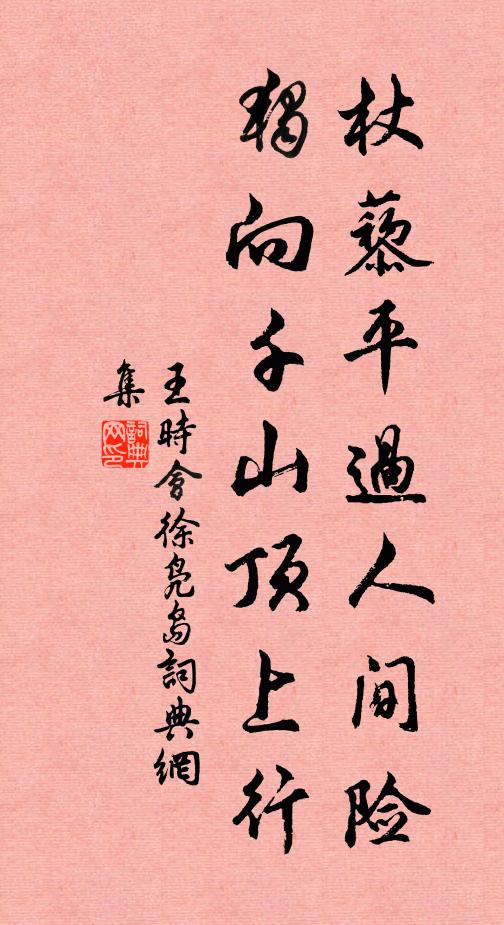 杖藜平過人间险
獨向千山顶上行
王時會徐鳧島詞典網
集
詞典网印